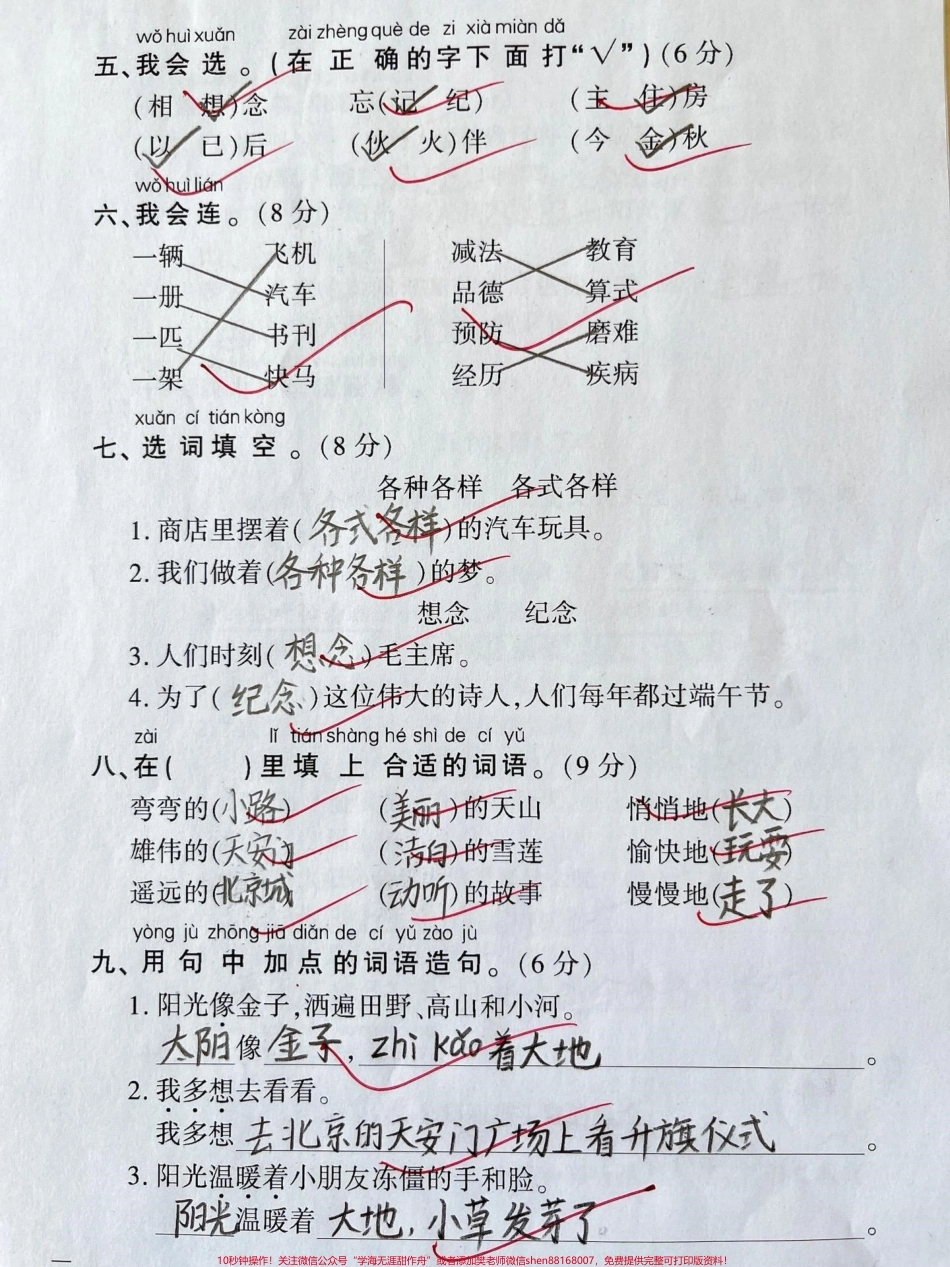 wǒ huì xuǎn zài zhèng què de zi xià miàn dǎ
五、我会选。(在正确的字下面打“√”)(6分)
(相 想)念 忘(记 纪) (主 住)房
(以 已)后 (伙 火)伴 (今 金)秋
wǒ huì lián
六、我会连。(8分)
一辆 飞机 减法 教育
一册 汽车 品德 算式
一匹 书刊 预防 磨难
一架 快马 经历 疾病
xuǎn cí tián kòng
七、选词填空。(8分)
各种各样 各式各样
1.商店里摆着(各式各样)的汽车玩具。
2.我们做着(各种各样)的梦。
想念 纪念
3.人们时刻(想念)毛主席。
4.为了(纪念)这位伟大的诗人,人们每年都过端午节。
zài lǐ tián shàng hé shì de cí yǔ
八、在( )里填上合适的词语。(9分)
弯弯的(小路) (美丽)的天山 悄悄地(长大)
雄伟的(天安门) (洁白)的雪莲 愉快地(玩耍)
遥远的(北京城) (动听)的故事 慢慢地(走了)
yòng jù zhōng jiā diǎn de cí yǔ zào jù
九、用句中加点的词语造句。(6分)
1.阳光像金子,洒遍田野、高山和小河。
太阳像金子,zhì kǎo着大地。
2.我多想去看看。
我多想去北京的天安门广场上看升旗仪式。
3.阳光温暖着小朋友冻僵的手和脸。
阳光温暖着大地,小草发芽了。
10秒钟操作！关注微信公众号“学海无涯甜作舟”或者添加樊老师微信shen88168007，免费提供完整可打印版资料！